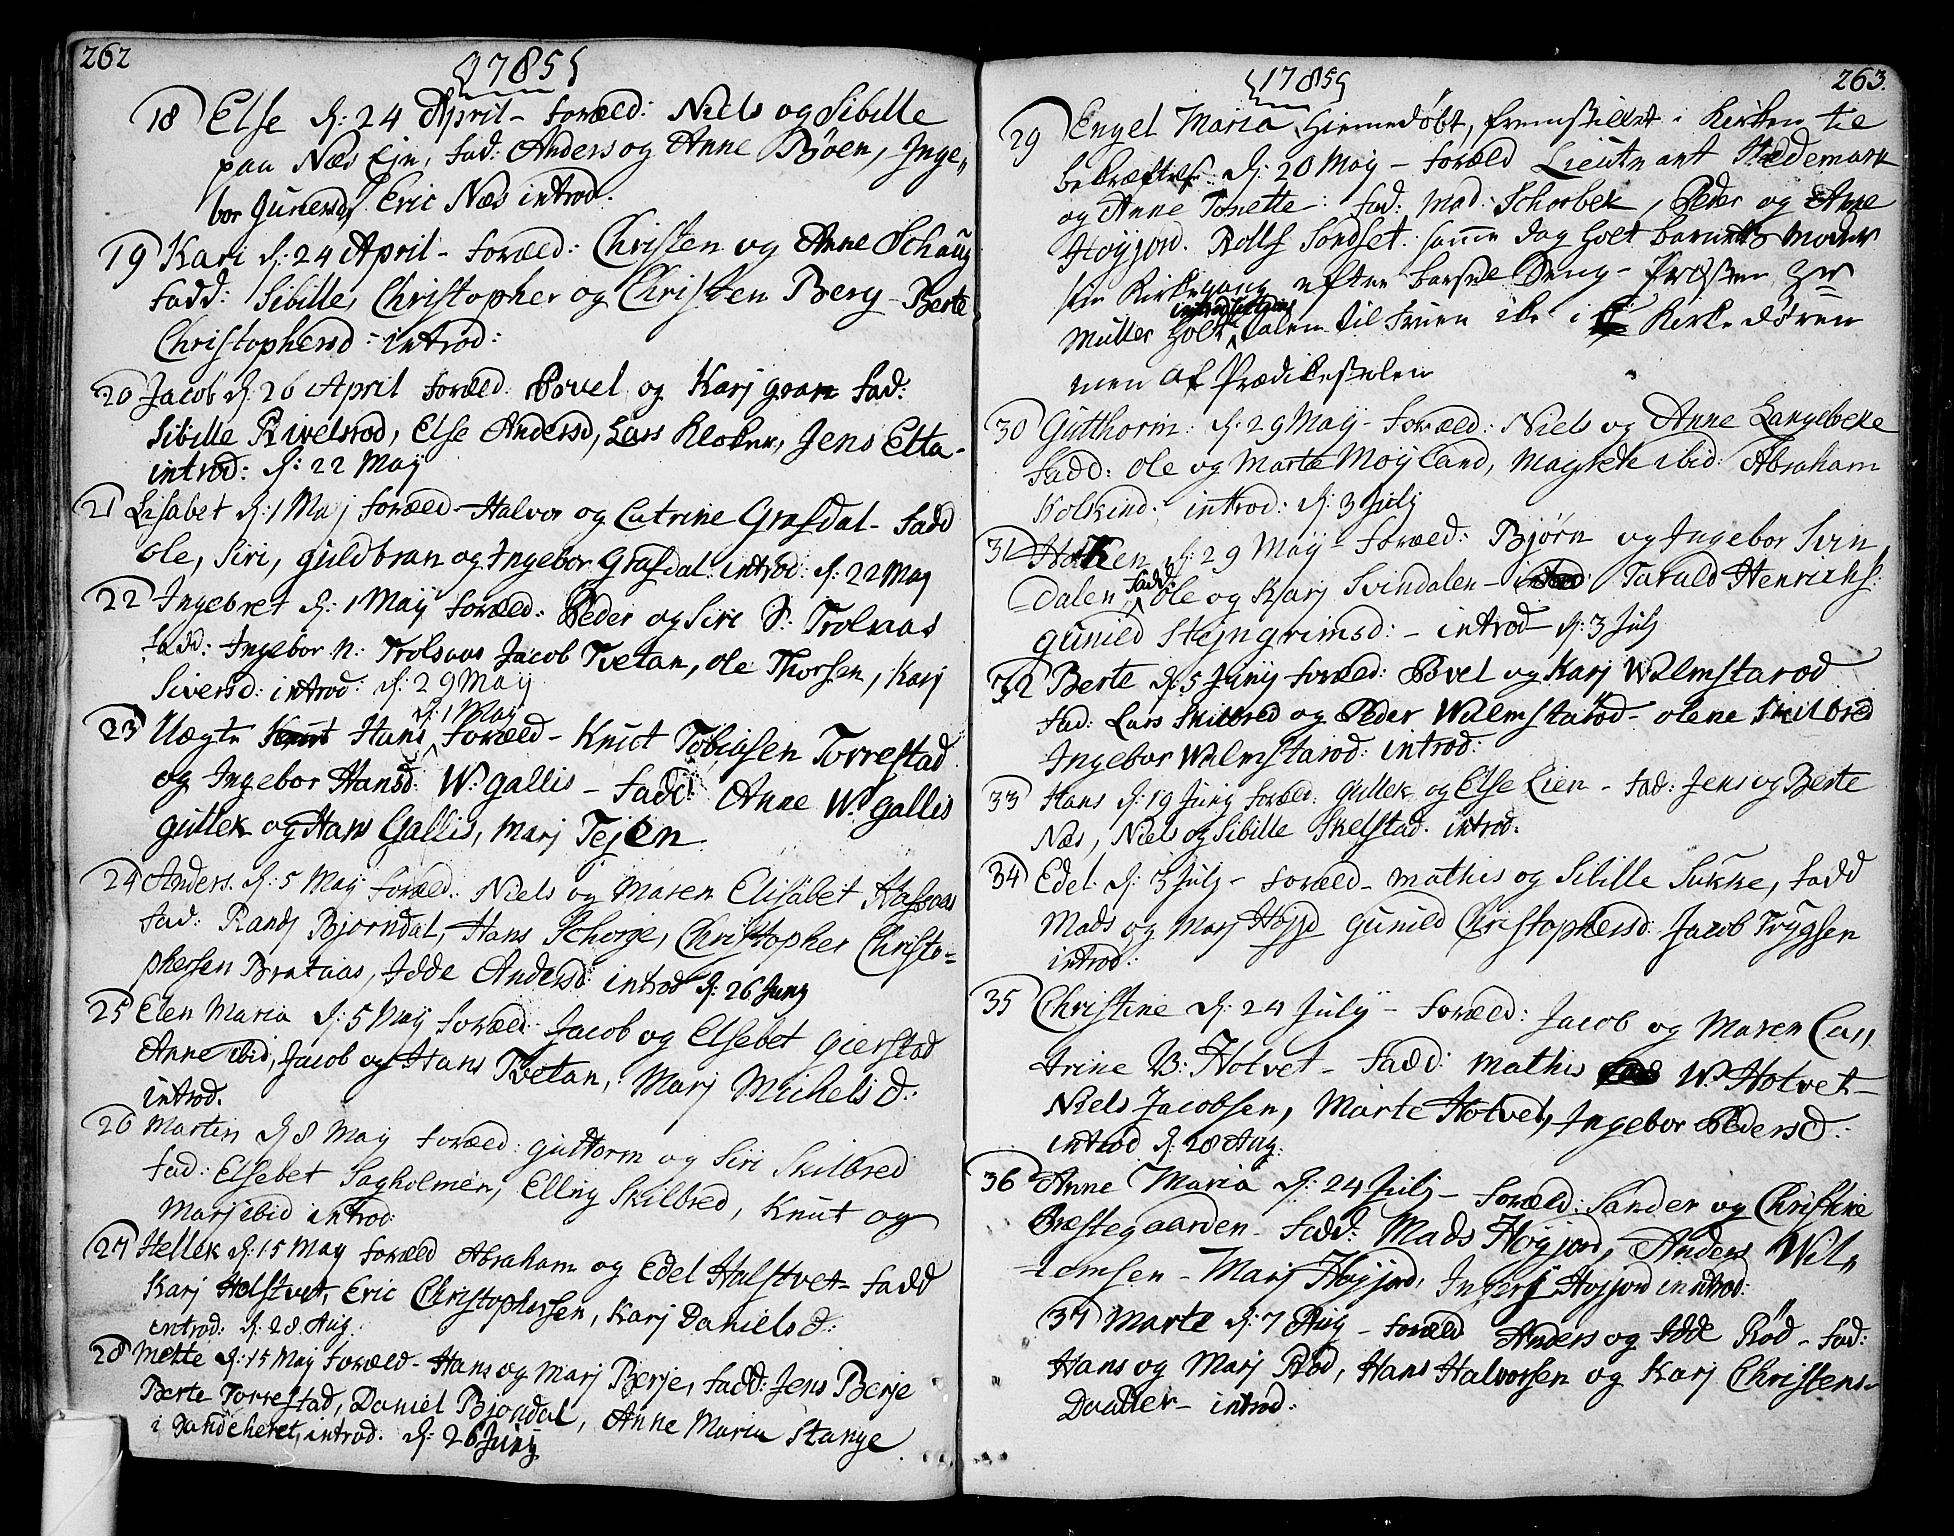 262
1785
18 Else d: 24 April - foræld: Niels og Sibille
paa Næs Eje, fad: Anders og Anne Bøen, Inge,,
bor Gunersd, Eric Næs introd.
19 Kari d: 24 April - foræld: Christen og Anne Schaug
fadd: Sibille, Christopher og Christen Berg - Berte
Christophersd - introd:
20 Jacob d: 26 April foræld: Povel og Karj gran fad:
Sibille Rivelsrod, Else Andersd, Lars Kloker, Jens Elta -
introd: d: 22 May
21 Lisabet d: 1 Maj foræld - Halvor og Catrine Grafdal - fadd
ole, Siri, guldbran og Ingebor Grafdal: introd: d: 22 May
22 Ingebret d: 1 Maij foræld: Peder og Siri S: Trolsaas
fadd: Ingebor N: Trolsaas Jacob Tvetan, ole Thorsen, Karj
Siversd: introd: d: 29 May
d: 1 May
23 Uægte Hans foræld - Knut Tobiasen Torrestad
og Ingebor Hansd: W: gallis - fadd: Anne W: gallis
gullek og Hans Gallis, Marj Tejen
24 Anders. d: 5 May foræld: Niels og Maren Elisabet Aasnas
fad: Randj Bjorndal, Hans Schorje, Christopher Christo=
phersen Brataas, Idde Andersd: introd d: 26 Junj
25 Elen Maria d: 5 Maij foræld: Jacob og Elsebet gierstad
Anne ibid, Jacob og Hans Tvetan, Marj Michelsd:
introd.
26 Martin d 8 May foræld: guttorm og Siri Skilbred
fad: Elsebet Sagholmen, Elling Skilbred, Knut og
Marj ibid introd
27 Hellek d: 15 May foræld Abraham og Edel Holstvet - fadd
Karj Holstvet, Eric Christophersen, Karj Danielsd:
introd: d: 28. Aug.
28 Mette d: 15 Maj foræld - Hans og Marj Berje, fadd: Jens Berje
Berte Torrestad, Daniel Bjondal, Anne Maria Stange
i Sandeheret, introd. d: 26 Junij
263.
1785
29 Engel Maria Hiemedøbt, fremstillet i Kirken til
bekræftelse: d: 20 May - foræld Lieutnant Hedemark
og Anne Tonette: fad: Mad: Schorbek, Peder og Anne
Høyjord. Rolf Sondset: samme dag holt barnets Moder
sin Kirkegang efter barsel Seng - Præsten Hr
introductions
Müller holt talen til Fruen ike i Kirke døren
men af Prædikestolen
30 Gutthorm: d: 29 May - foræld: Niels og Anne Langebeke
fadd: ole og Marte Moyland, Magrete ibid: Abraham
Kolkind: introd: d: 3 Julj
31 Haken d: 29 Maij - foræld: Bjørn og Ingebor Svin,
fadd:
dalen ole og Karj Svindalen - Tarald Henrichs:
gunild Stejngrimsd: - introd - d: 3 Julj
32 Berte d: 5 Junij foræld: Povel og Karj Walmstarod
fad: Lars Skilbred og Peder Walmstarod - olene Skilbred
Ingebor Walmstarod: introd:
33 Hans d: 19 Junij foræld: Gullek og Else Lien - fad: Jens og Berte
Næs, Niels og Sibille Skelstad. introd.
34 Edel d: 3 Julj - foræld - Mathis og Sibille Sukke, fadd
Mads og Marj Hojjd gunild Christophersd: Jacob Trygsen
introd:
35 Christine d: 24 Julij - foræld: Jacob og Maren Ca,,
trine W: Hotvet - fadd: Mathis W: Hotvet -
Niels Jacobsen, Marte Hotvet, Ingebor Pedersd:
introd d: 28 Aug:
36 Anne Maria d: 24 Julj - foræld: Sander og Christine
Præstegaarden - fadd: Mads Høyjord, Anders Wil,,
lomsen - Marj Høyjord, Ingerj Hoyjord introd:
37 Marte d: 7 Aug - foræld Anders og Idde Rød - fad:
Hans og Marj Rød, Hans Halvorsen og Karj Christens-
Daatter - introd: